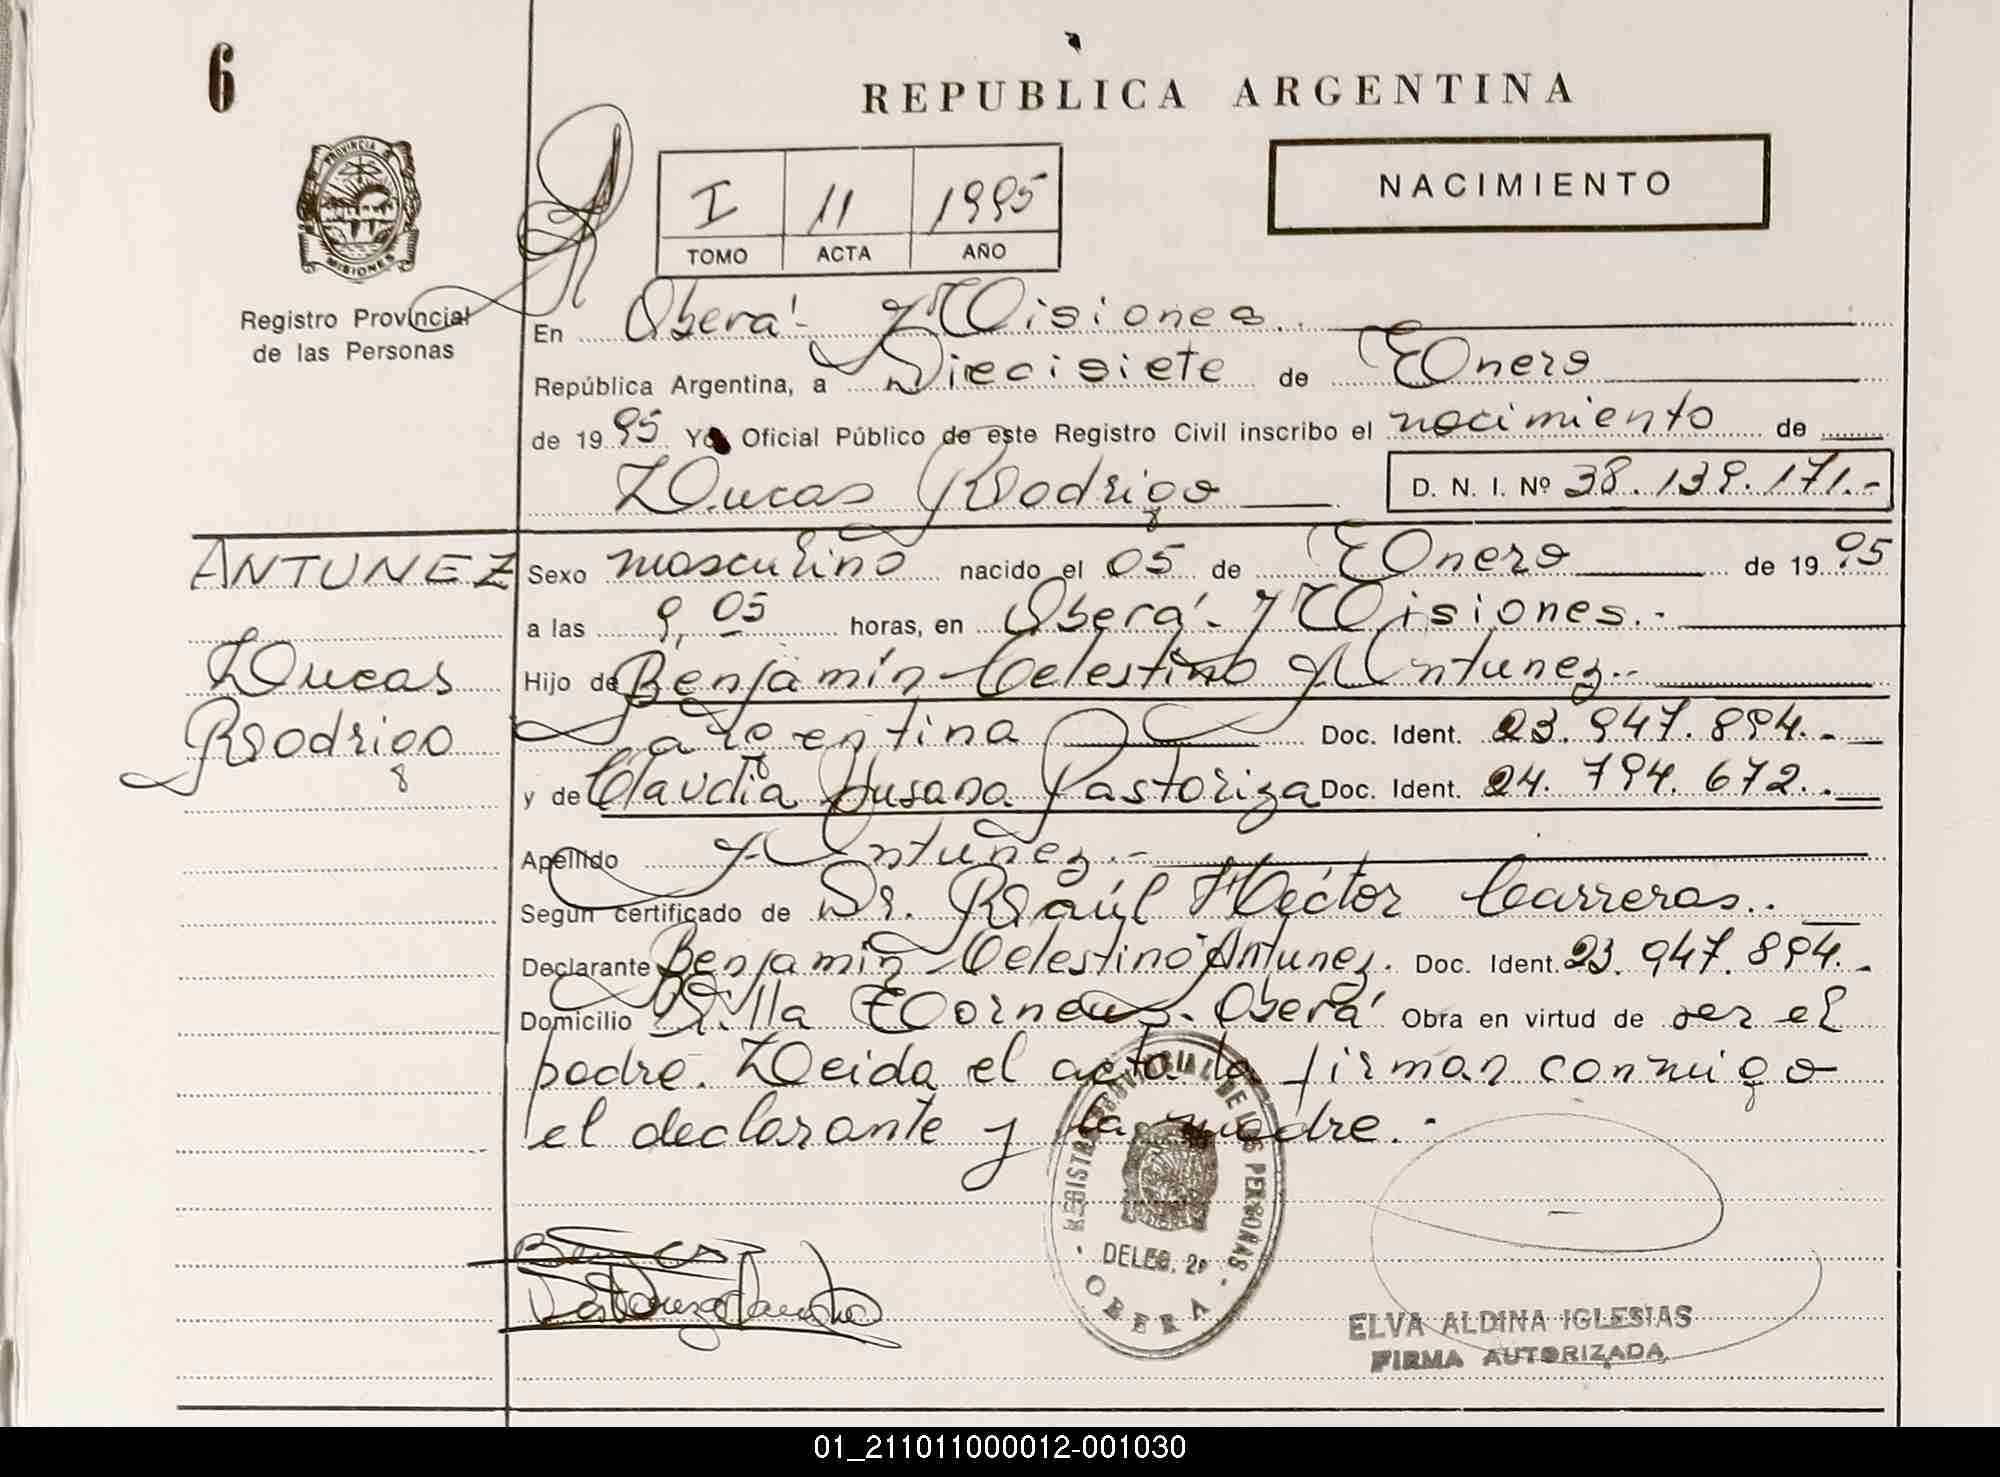 6
REPUBLICA ARGENTINA
PROVINCIA
MISIONES
Registro Provincial
de las Personas
I 11 1995
TOMO ACTA AÑO
NACIMIENTO
En Oberá - Misiones.
República Argentina, a Diecisiete de Enero
de 1995 Yo Oficial Público de este Registro Civil inscribo el nacimiento de
Lucas Rodrigo D. N. I. Nº 38.139.171.-
ANTUNEZ
Lucas
Rodrigo
Sexo masculino nacido el 05 de Enero de 1995
a las 9,05 horas, en Oberá - Misiones.-
Hijo de Benjamín Celestino Antunez.-
argentina Doc. Ident. 23.947.894.-
y de Claudia Susana Pastoriza Doc. Ident. 24.794.672.-
Apellido Antunez.-
Según certificado de Dr. Raúl Héctor Carreras.
Declarante Benjamín Celestino Antunez. Doc. Ident. 23.947.894.-
Domicilio Villa Oberá Obra en virtud de ser el
padre. Leida el acta la firman conmigo
el declarante y la madre.-
REGISTRO PROVINCIAL DE LAS PERSONAS
DELEG. 2ª
OBERA
Pastoriza Claudia
ELVA ALDINA IGLESIAS
FIRMA AUTORIZADA
01_211011000012-001030